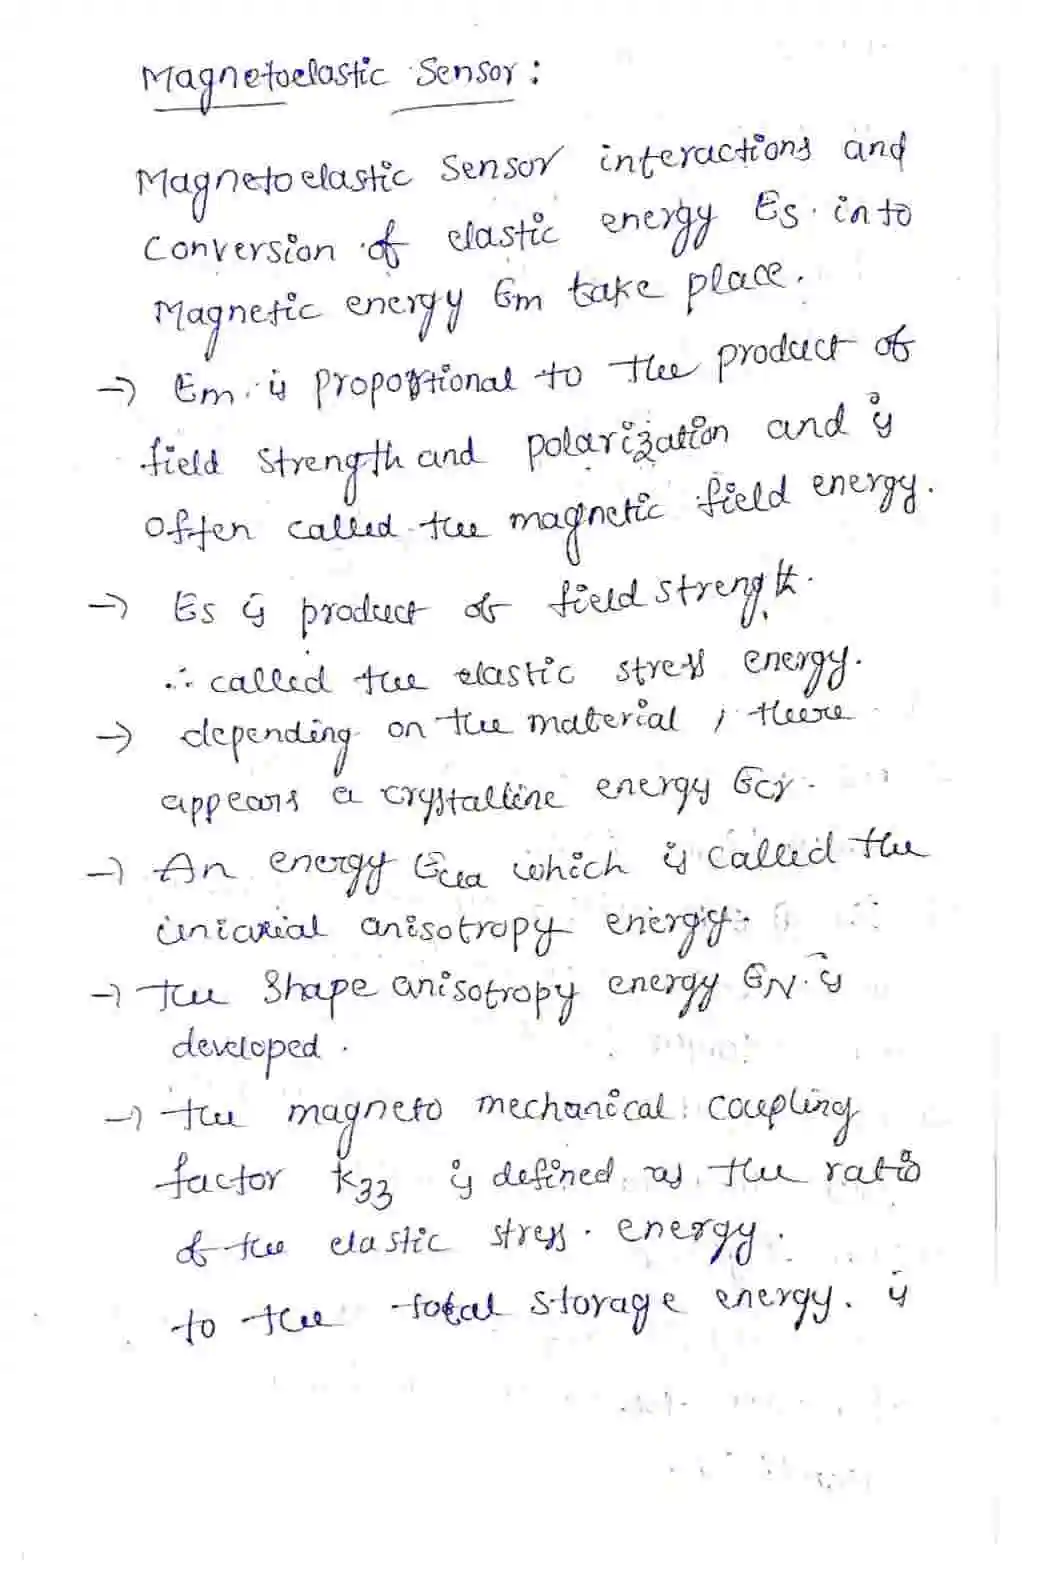 Magnetoelastic Sensor :
Magnetoelastic Sensor interactions and
Conversion of elastic energy Es into
Magnetic energy Em take place.
→ Em is proportional to the product of
field strength and polarization and is
Often called the magnetic field energy.
→ Es is product of field strength.
∴ called the elastic stress energy.
→ depending on the material, there
appears a crystalline energy Ecr.
→ An energy Eua which is called the
uniaxial anisotropy energy.
→ The Shape anisotropy energy EN is
developed.
→ The magneto mechanical coupling
factor K33 is defined as the ratio
of the elastic stress energy.
to the total storage energy. is